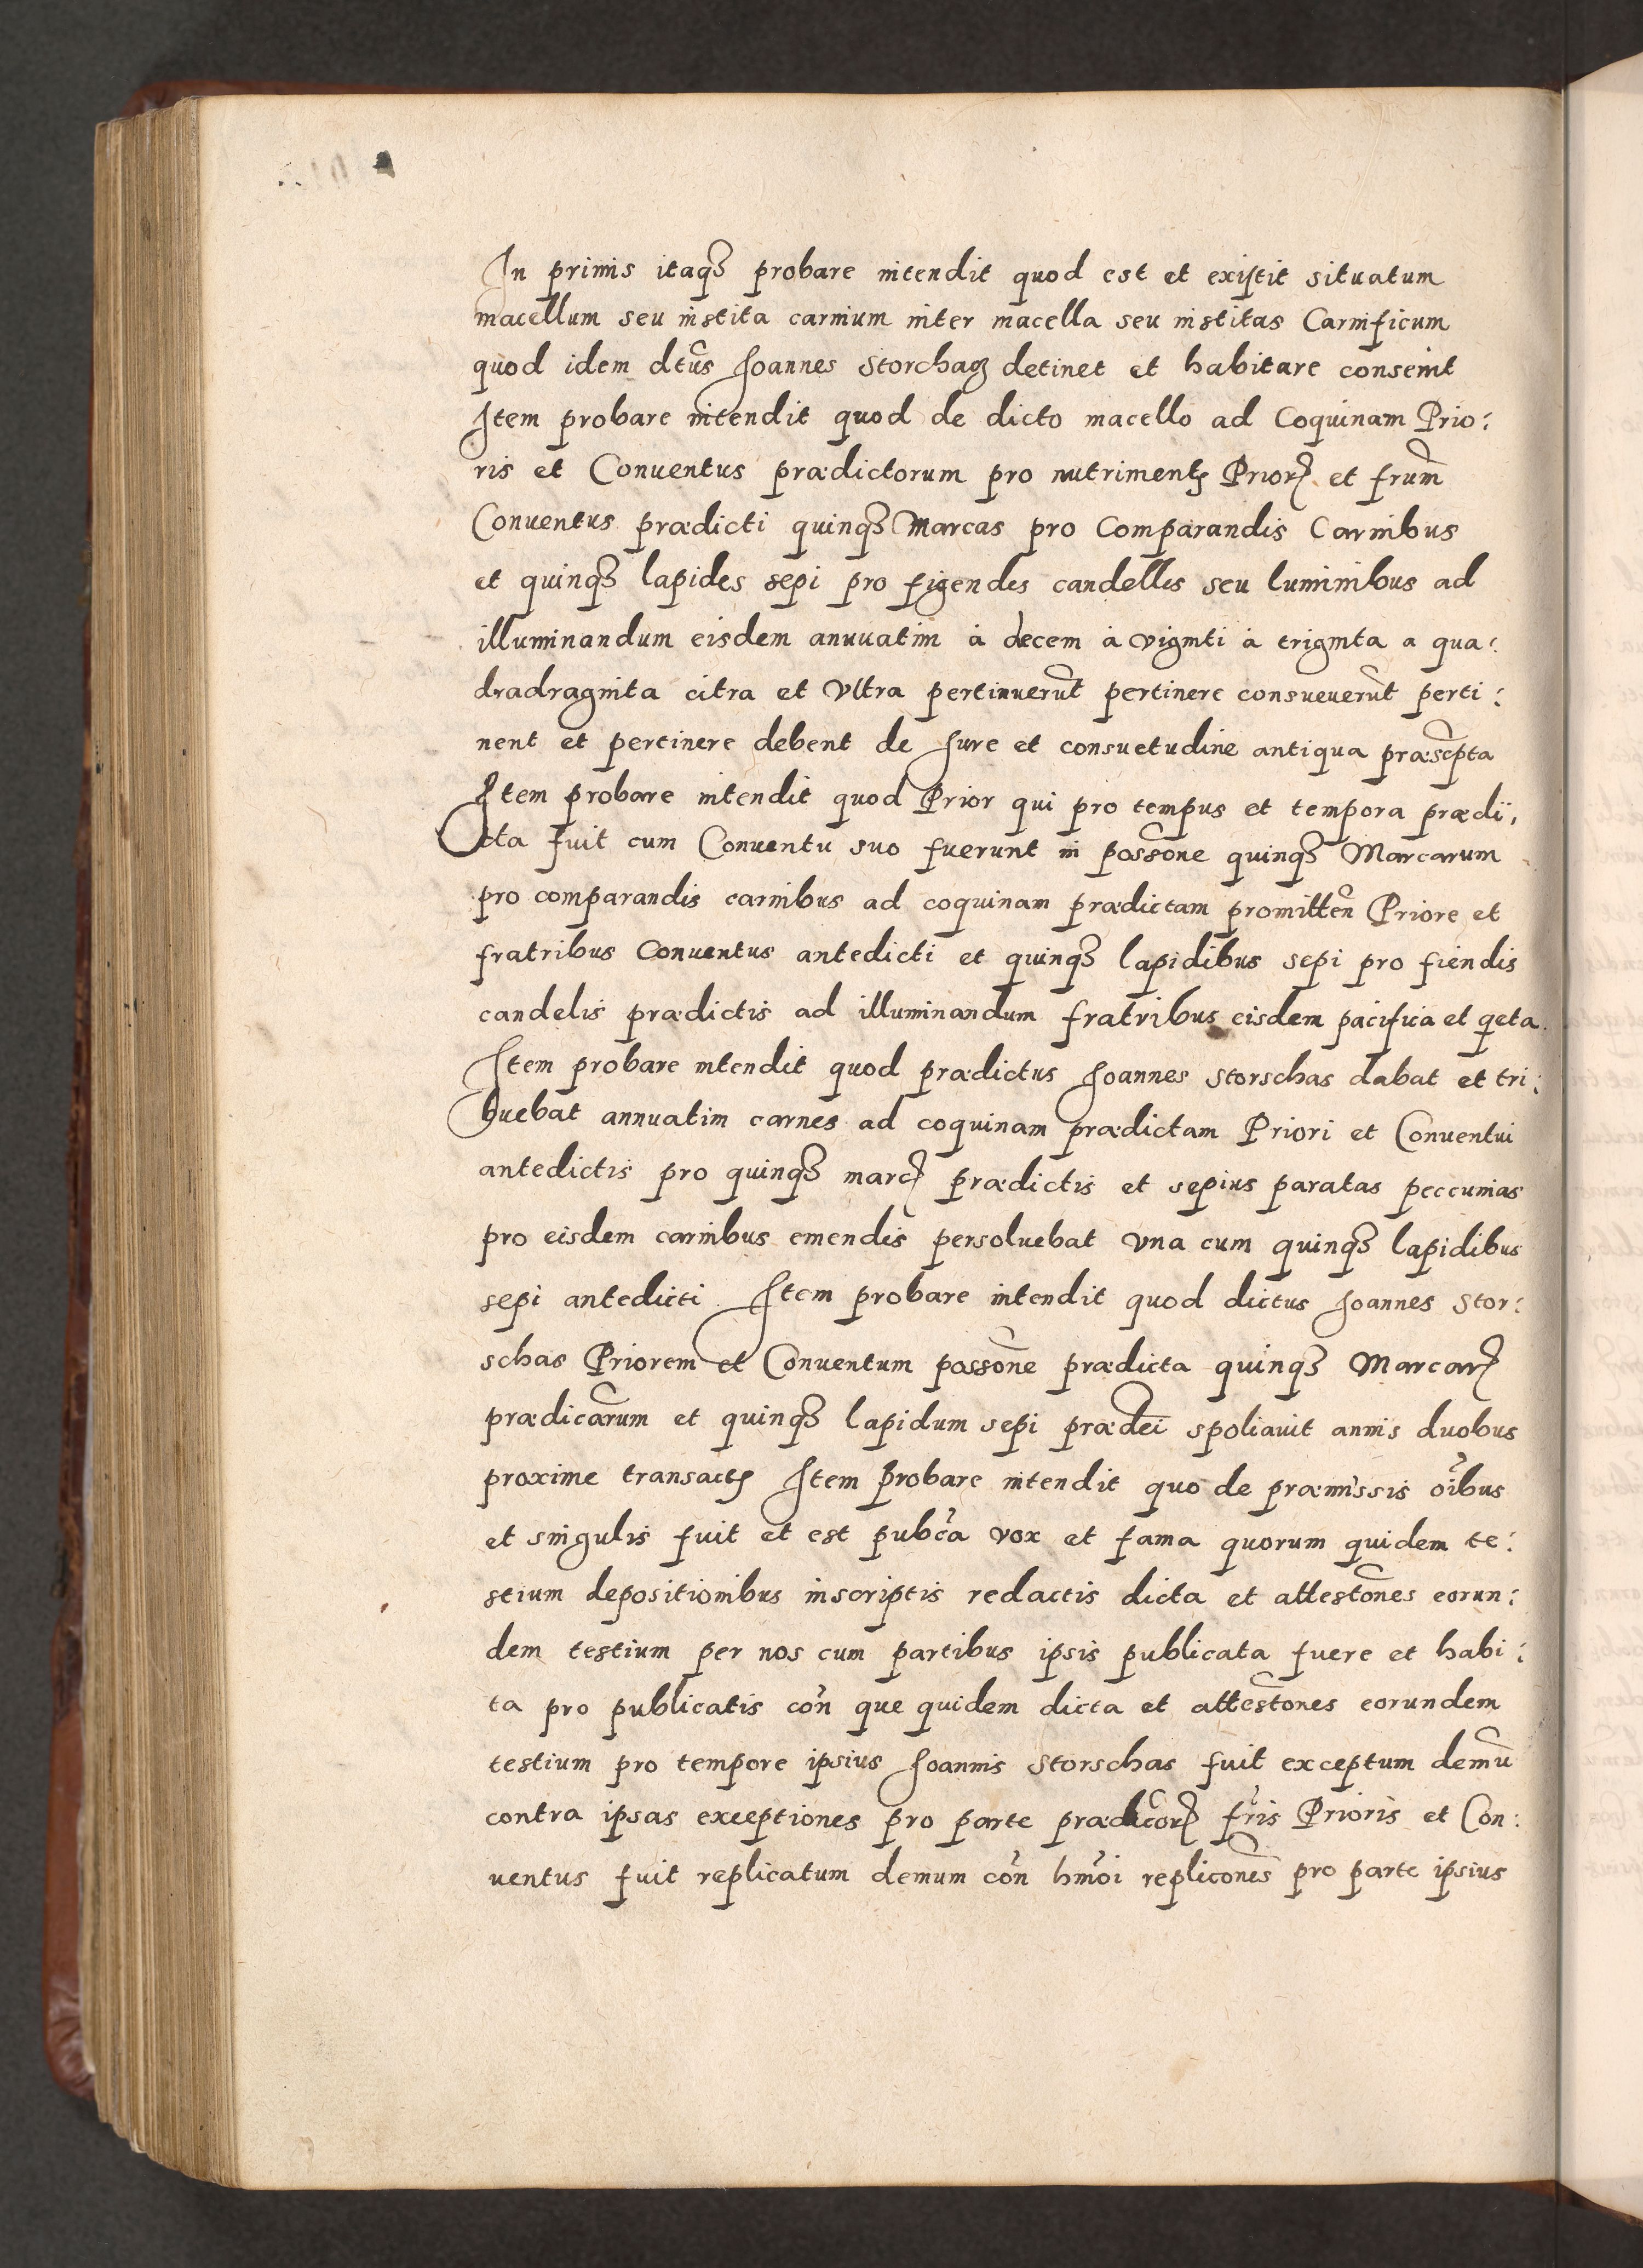 In primis itaqꝫ probare intendit quod est et existit situatum
macellum seu instita carnium inter macella seu institas Carnificum
quod idem dtus̃ Joannes Storchaꝫ detinet et habitare consenit
Item probare intendit quod de dicto macello ad Coquinam Prio:
ris et Conuentus prædictorum pro nutrimentꝭ Priorꝭ et frum̃
Conuentus prædicti quinqꝫ Marcas pro Comparandis Carnibus
et quinqꝫ lapides sepi pro figendes candelles seu luminibus ad
illuminandum eisdem anuuatim à decem à viginti à triginta a qua:
dradraginta citra et vltra pertinuerũt pertinere consueuerũt perti:
nent et pertinere debent de Jure et consuetudine antiqua præscp̃ta
Item probare intendit quod Prior qui pro tempus et tempora prædi:
cta fuit cum Conuentu suo fuerunt in possõne quinqꝫ Marcarum
pro comparandis carnibus ad coquinam prædictam promitten̄ Priore et
fratribus Conuentus antedicti et quinqꝫ lapidibus sepi pro fiendis
candelis prædictis ad illuminandum fratribus eisdem pacifica et qeta
Item probare intendit quod prædictus Joannes Storschas dabat et tri:
buebat annuatim carnes ad coquinam prædictam Priori et Conuentui
antedictis pro quinqꝫ marcꝭ prædictis et sepius paratas peccunias
pro eisdem carnibus emendis persoluebat vna cum quinqꝫ lapidibus
sepi antedicti Item probare intendit quod dictus Joannes Stor:
schas Priorem et Conuentum possõne prædicta quinqꝫ Marcarꝭ
prædicãrum et quinqꝫ lapidum sepi prædc̄i spoliauit annis duobus
proxime transactꝭ Item Probare intendit quo de præmissis oĩbus
et singulis fuit et est pubc̃a vox et fama quorum quidem te:
stium depositionibus inscriptis redactis dicta et attestõnes eorun:
dem testium per nos cum partibus ipsis publicata fuere et habi:
ta pro publicatis cõn que quidem dicta et attestõnes eorundem
testium pro tempore ipsius Joannis Storschas fuit exceptum demũ
contra ipsas exceptiones pro parte prædicorꝭ fr̃is Prioris et Con:
uentus fuit replicatum demum cõn hmõi replicõnes pro parte ipsius